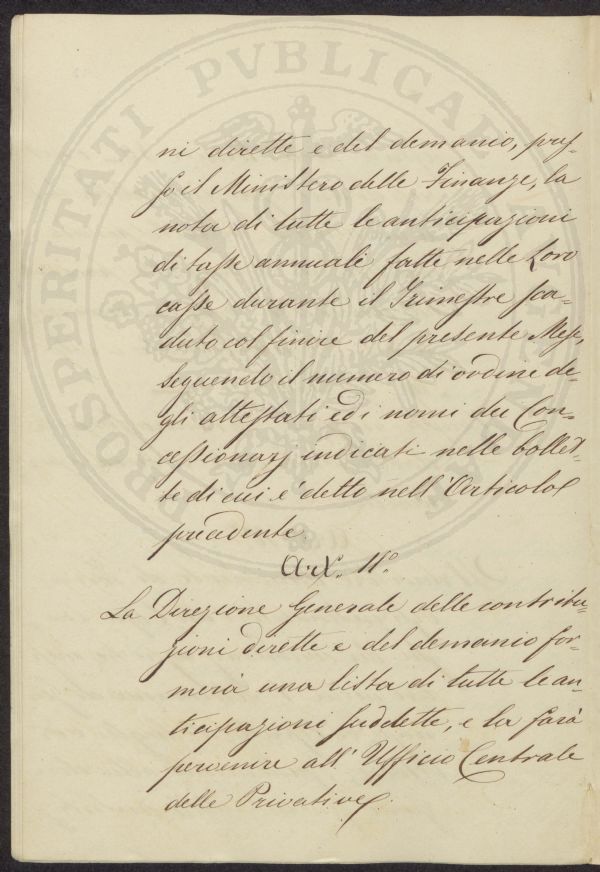 PROSPERITATI PVBLICAE
ni dirette e del demanio, pres-
so il Ministero delle Finanze, la
nota di tutte le anticipazioni
di tasse annuali fatte nelle Loro
casse durante il Trimestre sca-
duto col finire del presente Mese,
seguendo il numero di ordine de-
gli attestati ed i nomi dei Con-
cessionarj indicati nelle bollet-
te di cui é detto nell'Articolo
precedente.
Art. 11.°
La Direzione Generale delle contribu-
zioni dirette e del demanio for-
merà una lista di tutte le an-
ticipazioni suddette, e la farà
pervenire all'Ufficio Centrale
delle Privative.